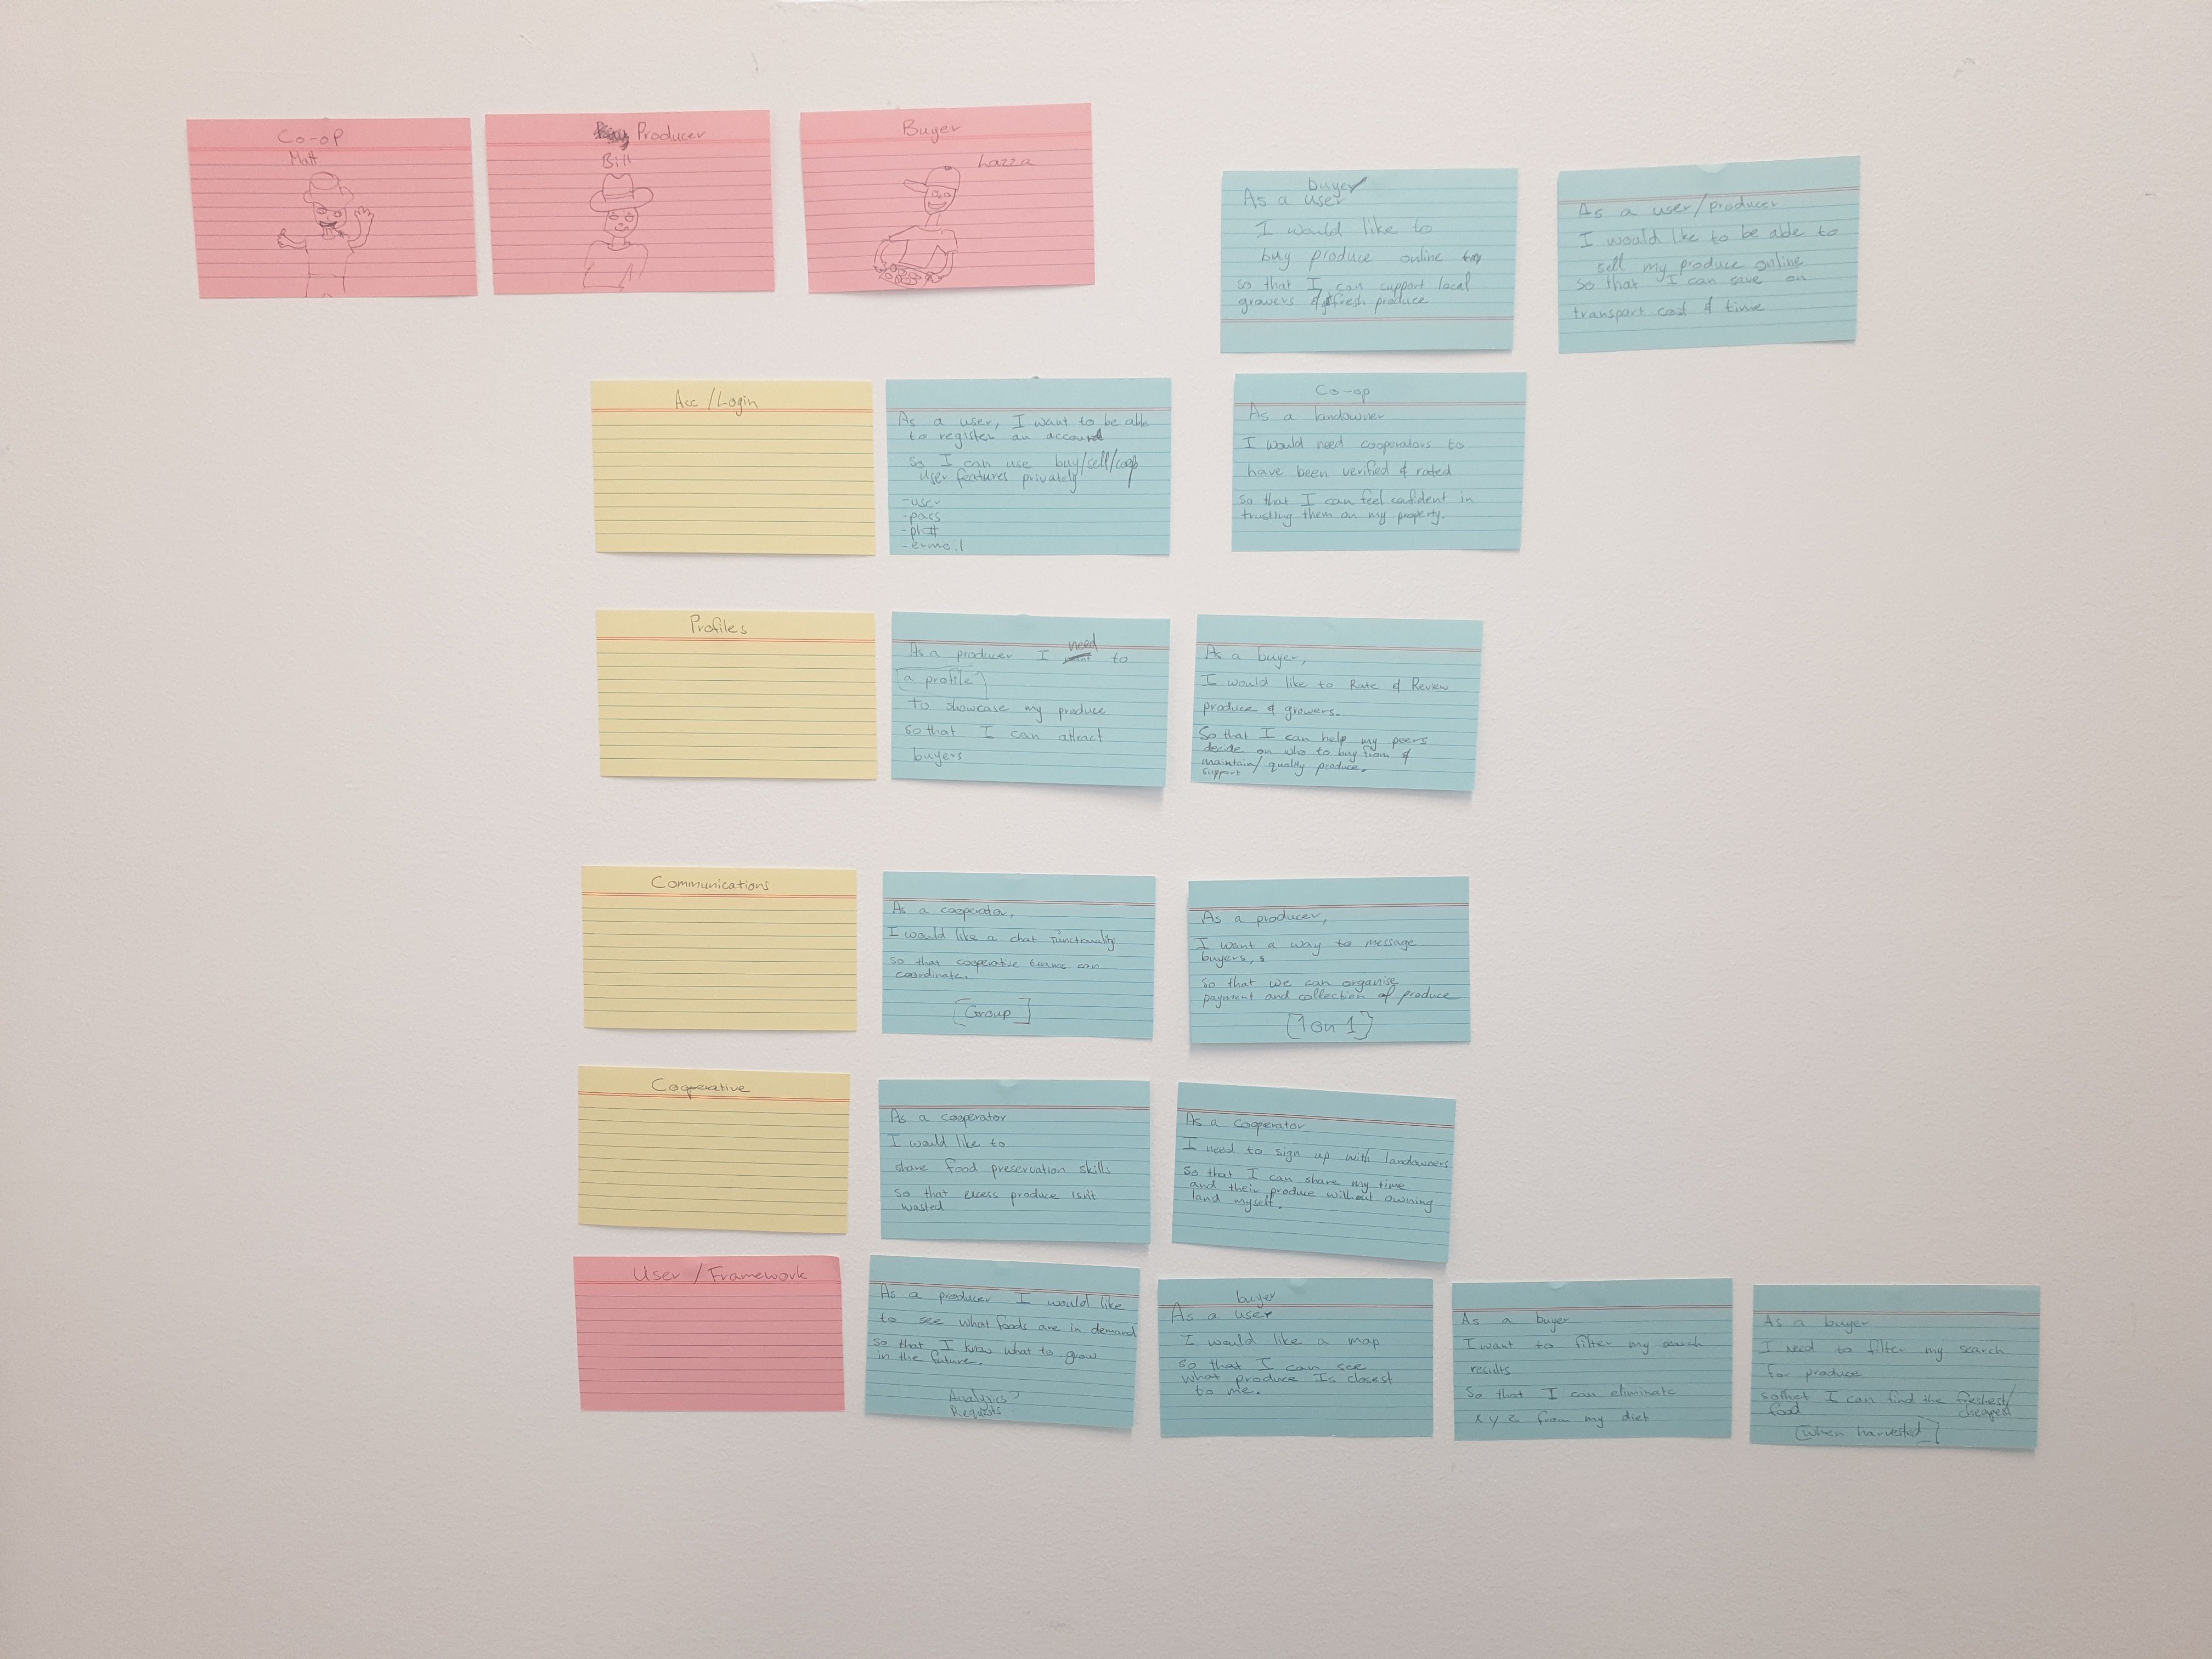 Co-op
Matt
Producer
Bill
Buyer
Lazza
buyer
As a user
I would like to
buy produce online
so that I can support local
growers & fresh produce
As a user/producer
I would like to be able to
sell my produce online
so that I can save on
transport cost & time
Acc/Login
As a user, I want to be able
to register an account
so I can use buy/sell/coop
user features privately
-user
-pass
-ph#
-email
Co-op
As a landowner
I would need cooperators to
have been verified & rated
so that I can feel confident in
trusting them on my property.
Profiles
need
As a producer I want to
[a profile]
to showcase my produce
so that I can attract
buyers
As a buyer,
I would like to Rate & Review
produce & growers.
So that I can help my peers
decide on who to buy from &
maintain/ quality produce.
support
Communications
As a cooperator,
I would like a chat functionality
so that cooperative teams can
coordinate.
[Group]
As a producer,
I want a way to message
buyers,
so that we can organise
payment and collection of produce
[1 on 1]
Cooperative
As a cooperator
I would like to
share food preservation skills
so that excess produce isn't
wasted
As a cooperator
I need to sign up with landowners
so that I can share my time
and their produce without owning
land myself.
User/Framework
As a producer I would like
to see what foods are in demand
so that I know what to grow
in the future.
Analytics?
Requests
buyer
As a user
I would like a map
so that I can see
what produce is closest
to me.
As a buyer
I want to filter my search
results
So that I can eliminate
x y z from my diet
As a buyer
I need to filter my search
for produce
so that I can find the freshest/
food cheapest
[when harvested]